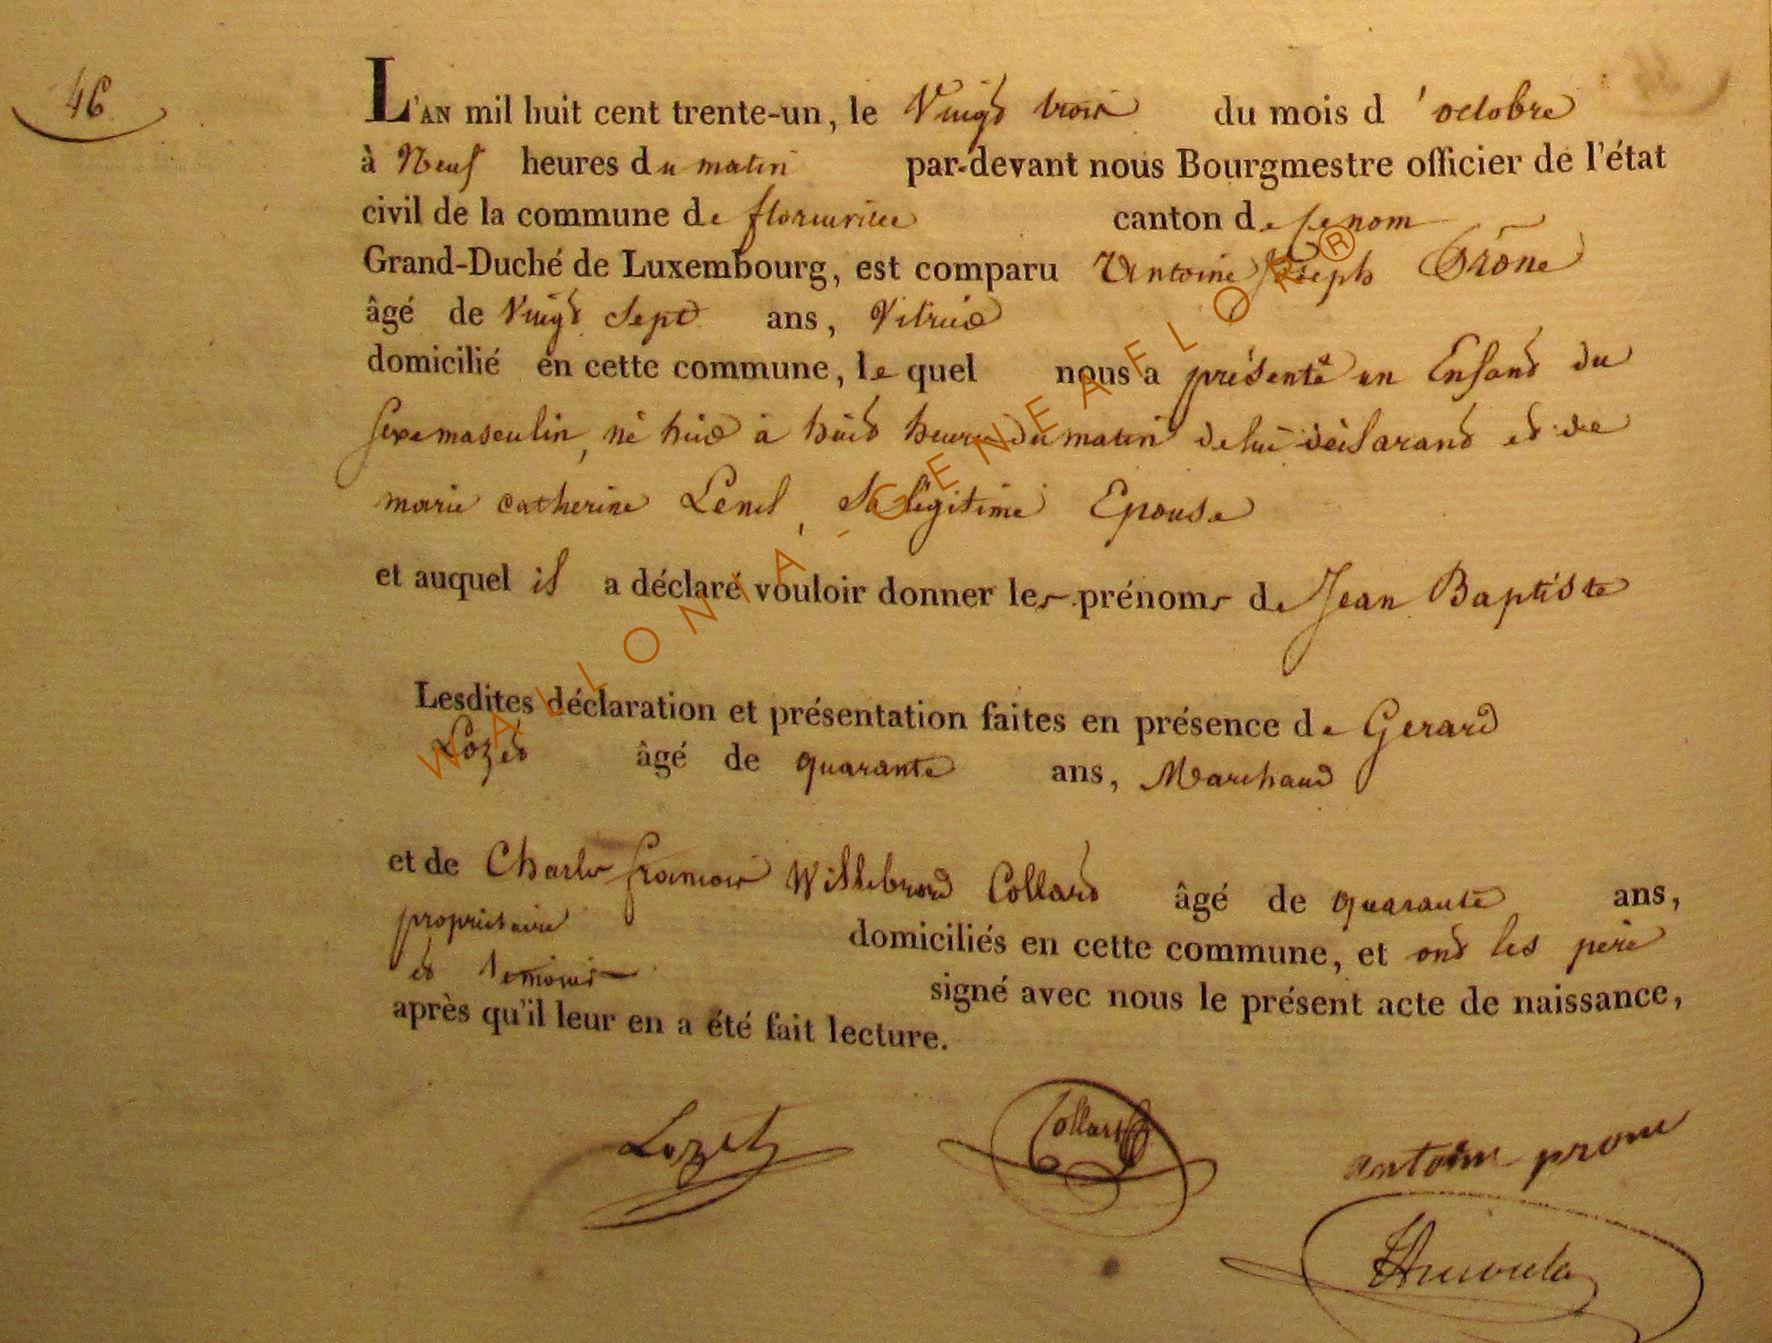 46
L'AN mil huit cent trente-un, le Vingt trois du mois d'octobre
à Neuf heures du matin par-devant nous Bourgmestre officier de l'état
civil de la commune de florenville canton de ce nom
Grand-Duché de Luxembourg, est comparu Antoine Joseph Prône
âgé de Vingt Sept ans, Vitrié
domicilié en cette commune, le quel nous a présenté un Enfant du
sexe masculin, né hui à huit heures du matin de lui déclarant et de
marie catherine, Sa légitime Epouse
et auquel il a déclaré vouloir donner les prénoms de Jean Baptiste
Lesdites déclaration et présentation faites en présence de Gerard
Lozet âgé de quarante ans, Marchand
et de Charles françois Willebrord Collard âgé de quarante ans,
propriétaire domiciliés en cette commune, et ont les père
et temoins signé avec nous le présent acte de naissance,
après qu'il leur en a été fait lecture.
Lozet Collard antoine prone
WALLONIA-GENEAFLOR®